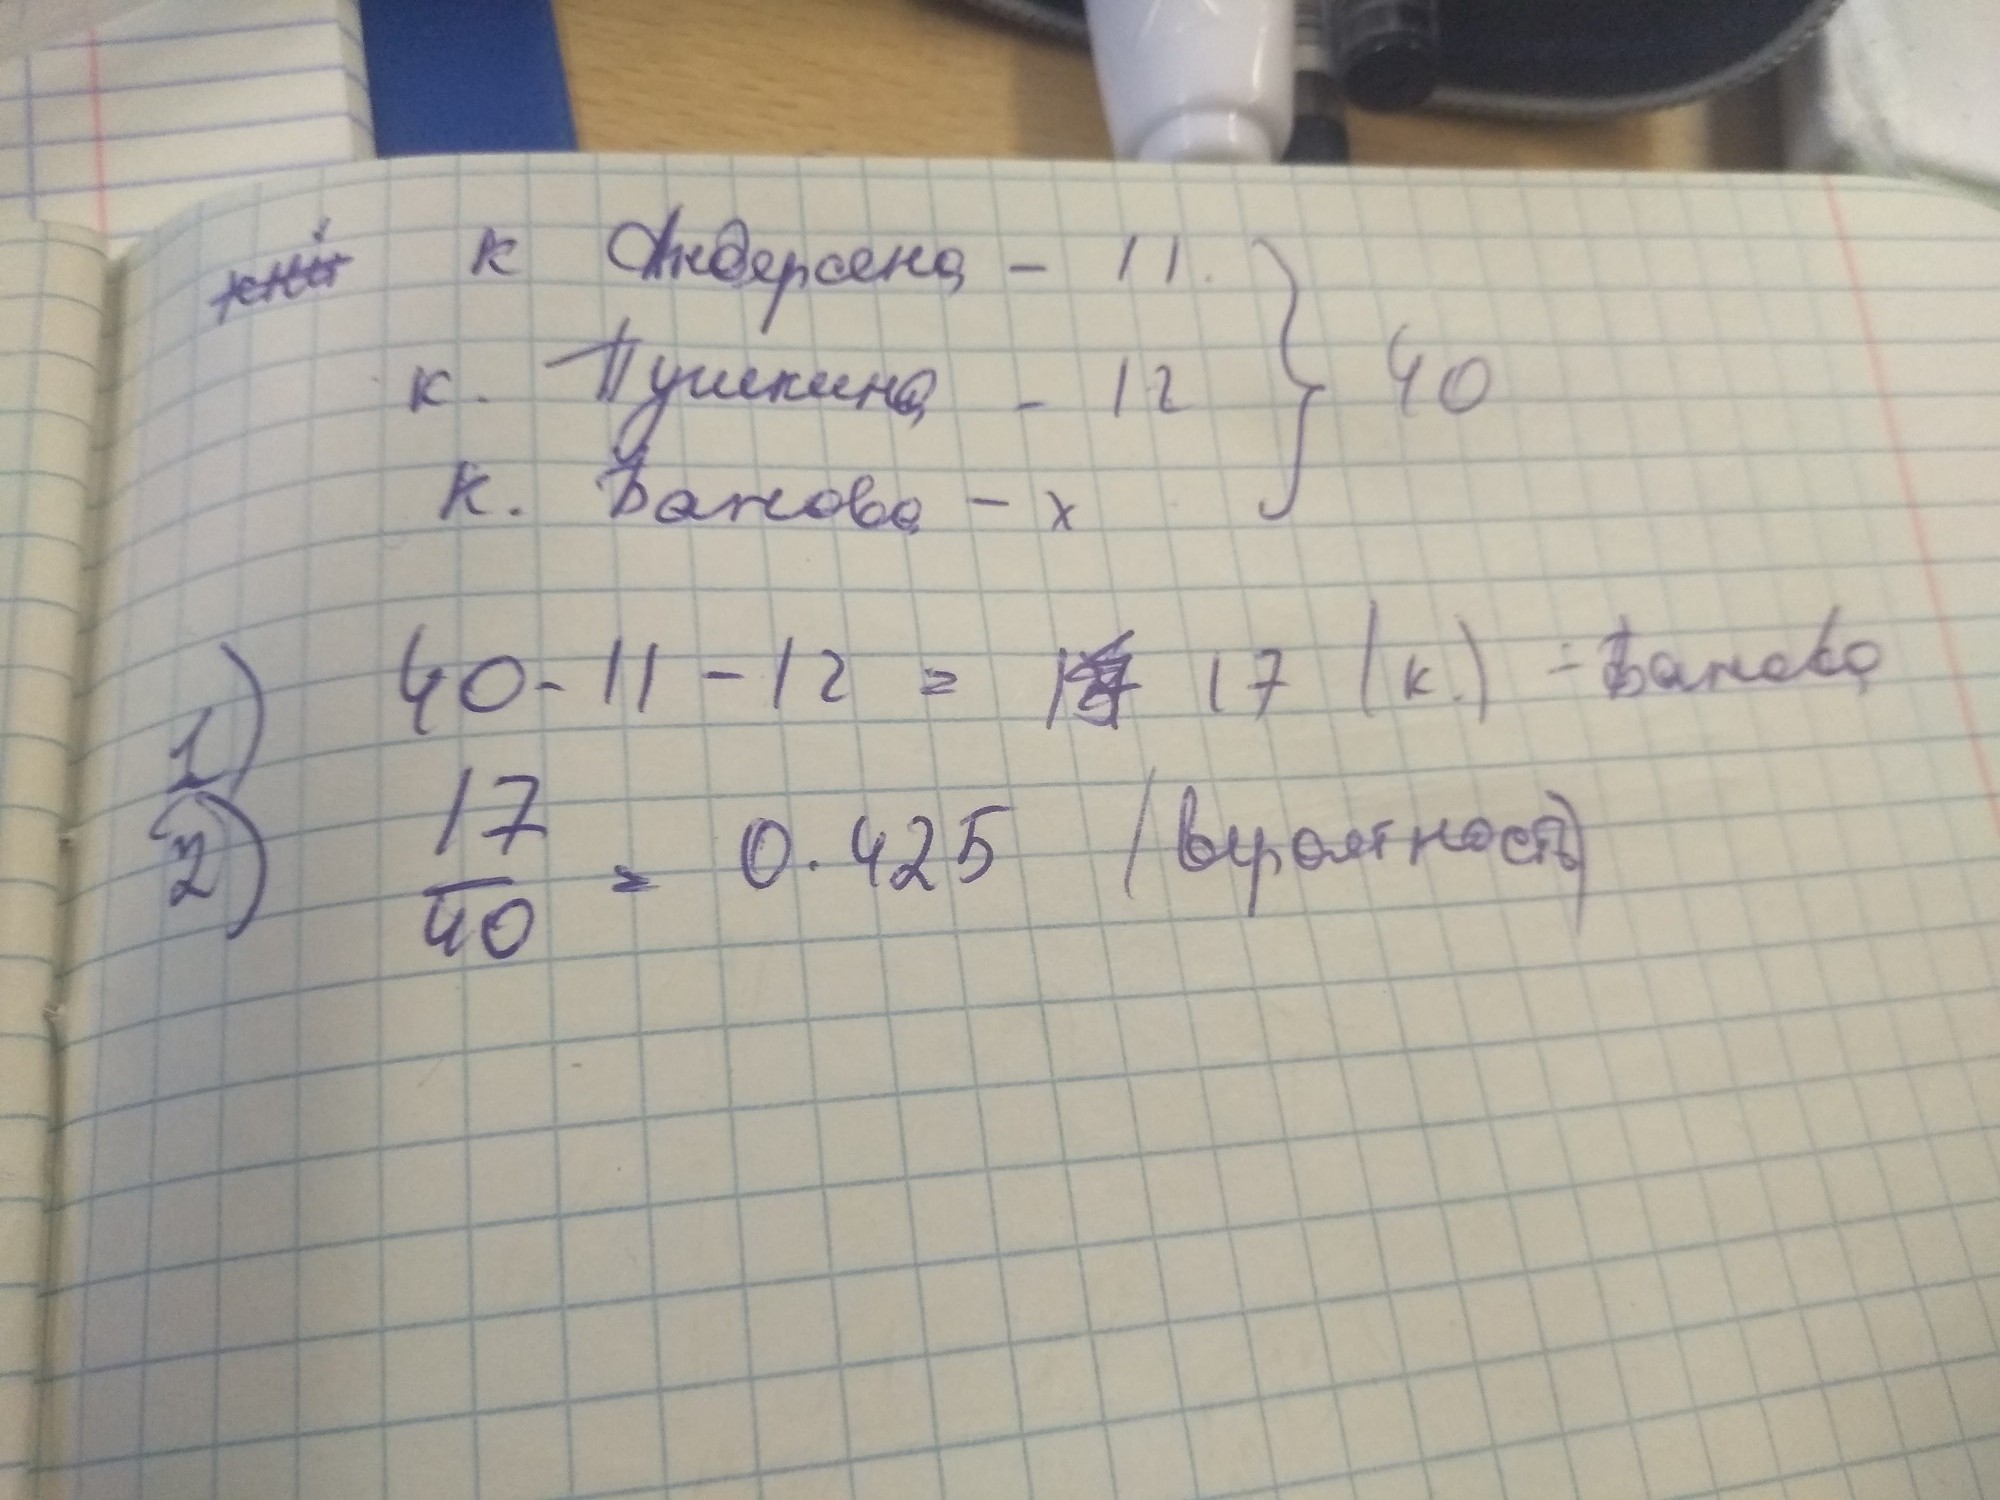 к Андерсена - 11.
к. Пушкина - 12
40
к. Бажова - х
1) 40 - 11 - 12 = 17 (к.) - Бажова
2) 17/40 = 0.425 (вероятность)